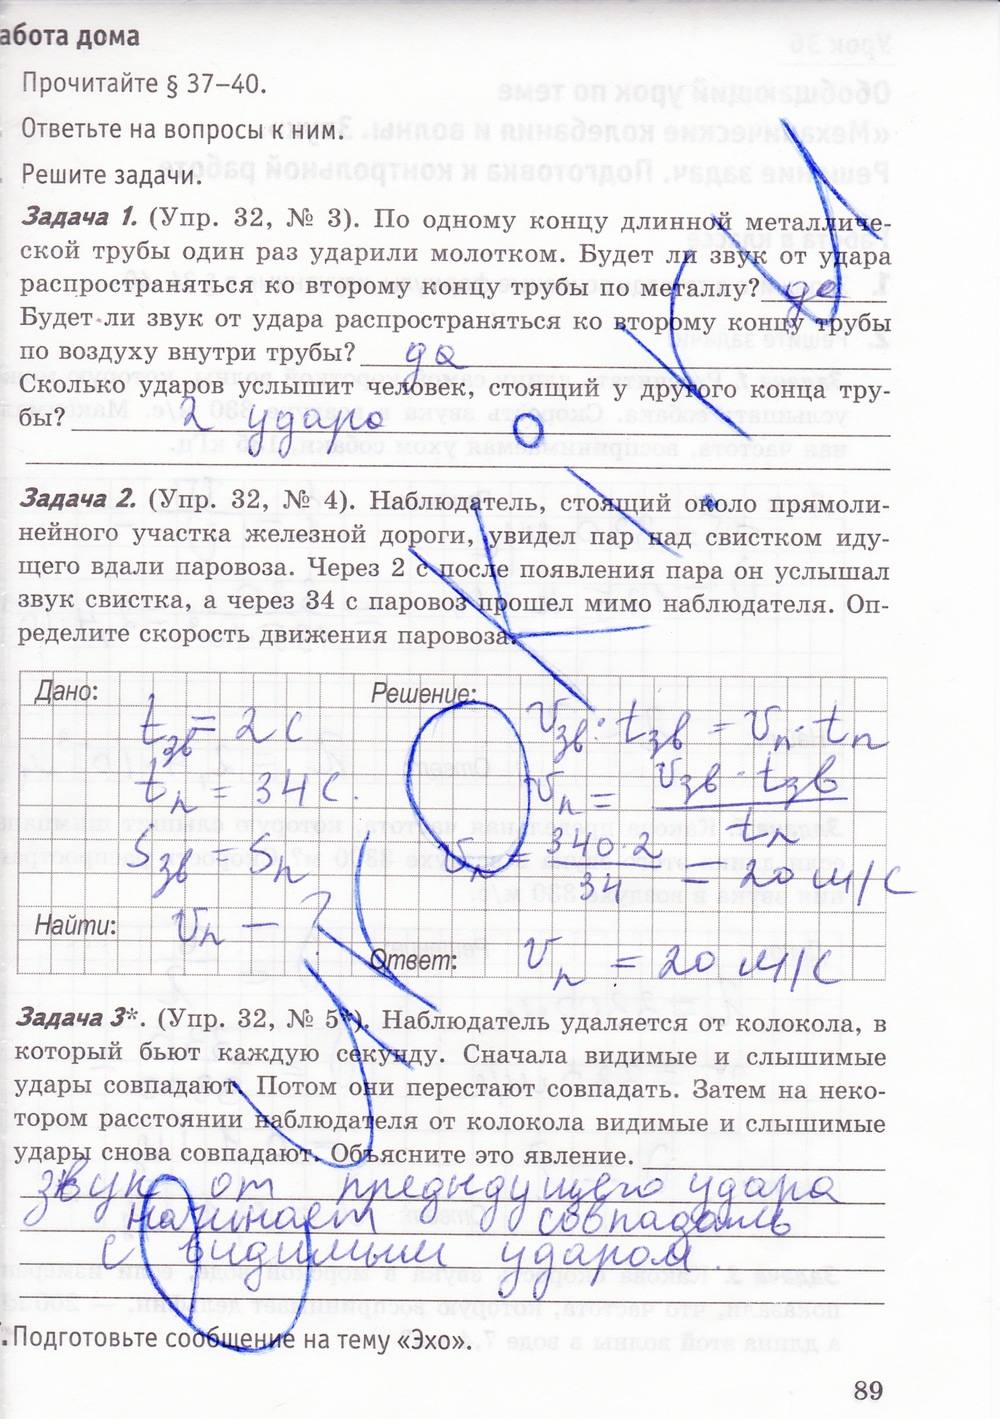 абота дома
Прочитайте § 37–40.
Ответьте на вопросы к ним.
Решите задачи.
Задача 1. (Упр. 32, № 3). По одному концу длинной металличе-
ской трубы один раз ударили молотком. Будет ли звук от удара
распространяться ко второму концу трубы по металлу? да
Будет ли звук от удара распространяться ко второму концу трубы
по воздуху внутри трубы? да
Сколько ударов услышит человек, стоящий у другого конца тру-
бы? 2 удара
Задача 2. (Упр. 32, № 4). Наблюдатель, стоящий около прямоли-
нейного участка железной дороги, увидел пар над свистком иду-
щего вдали паровоза. Через 2 с после появления пара он услышал
звук свистка, а через 34 с паровоз прошел мимо наблюдателя. Оп-
ределите скорость движения паровоза.
Дано: Решение:
tзв = 2 с vзв · tзв = vп · tп
tп = 34 с. vп = vзв · tзв / tп
Sзв = Sп vп = 340 · 2 / 34 = 20 м/с
Найти: vп — ?
Ответ: vп = 20 м/с
Задача 3*. (Упр. 32, № 5*). Наблюдатель удаляется от колокола, в
который бьют каждую секунду. Сначала видимые и слышимые
удары совпадают. Потом они перестают совпадать. Затем на неко-
тором расстоянии наблюдателя от колокола видимые и слышимые
удары снова совпадают. Объясните это явление.
звук от предыдущего удара
начинает совпадать
с видимым ударом.
Подготовьте сообщение на тему «Эхо».
89